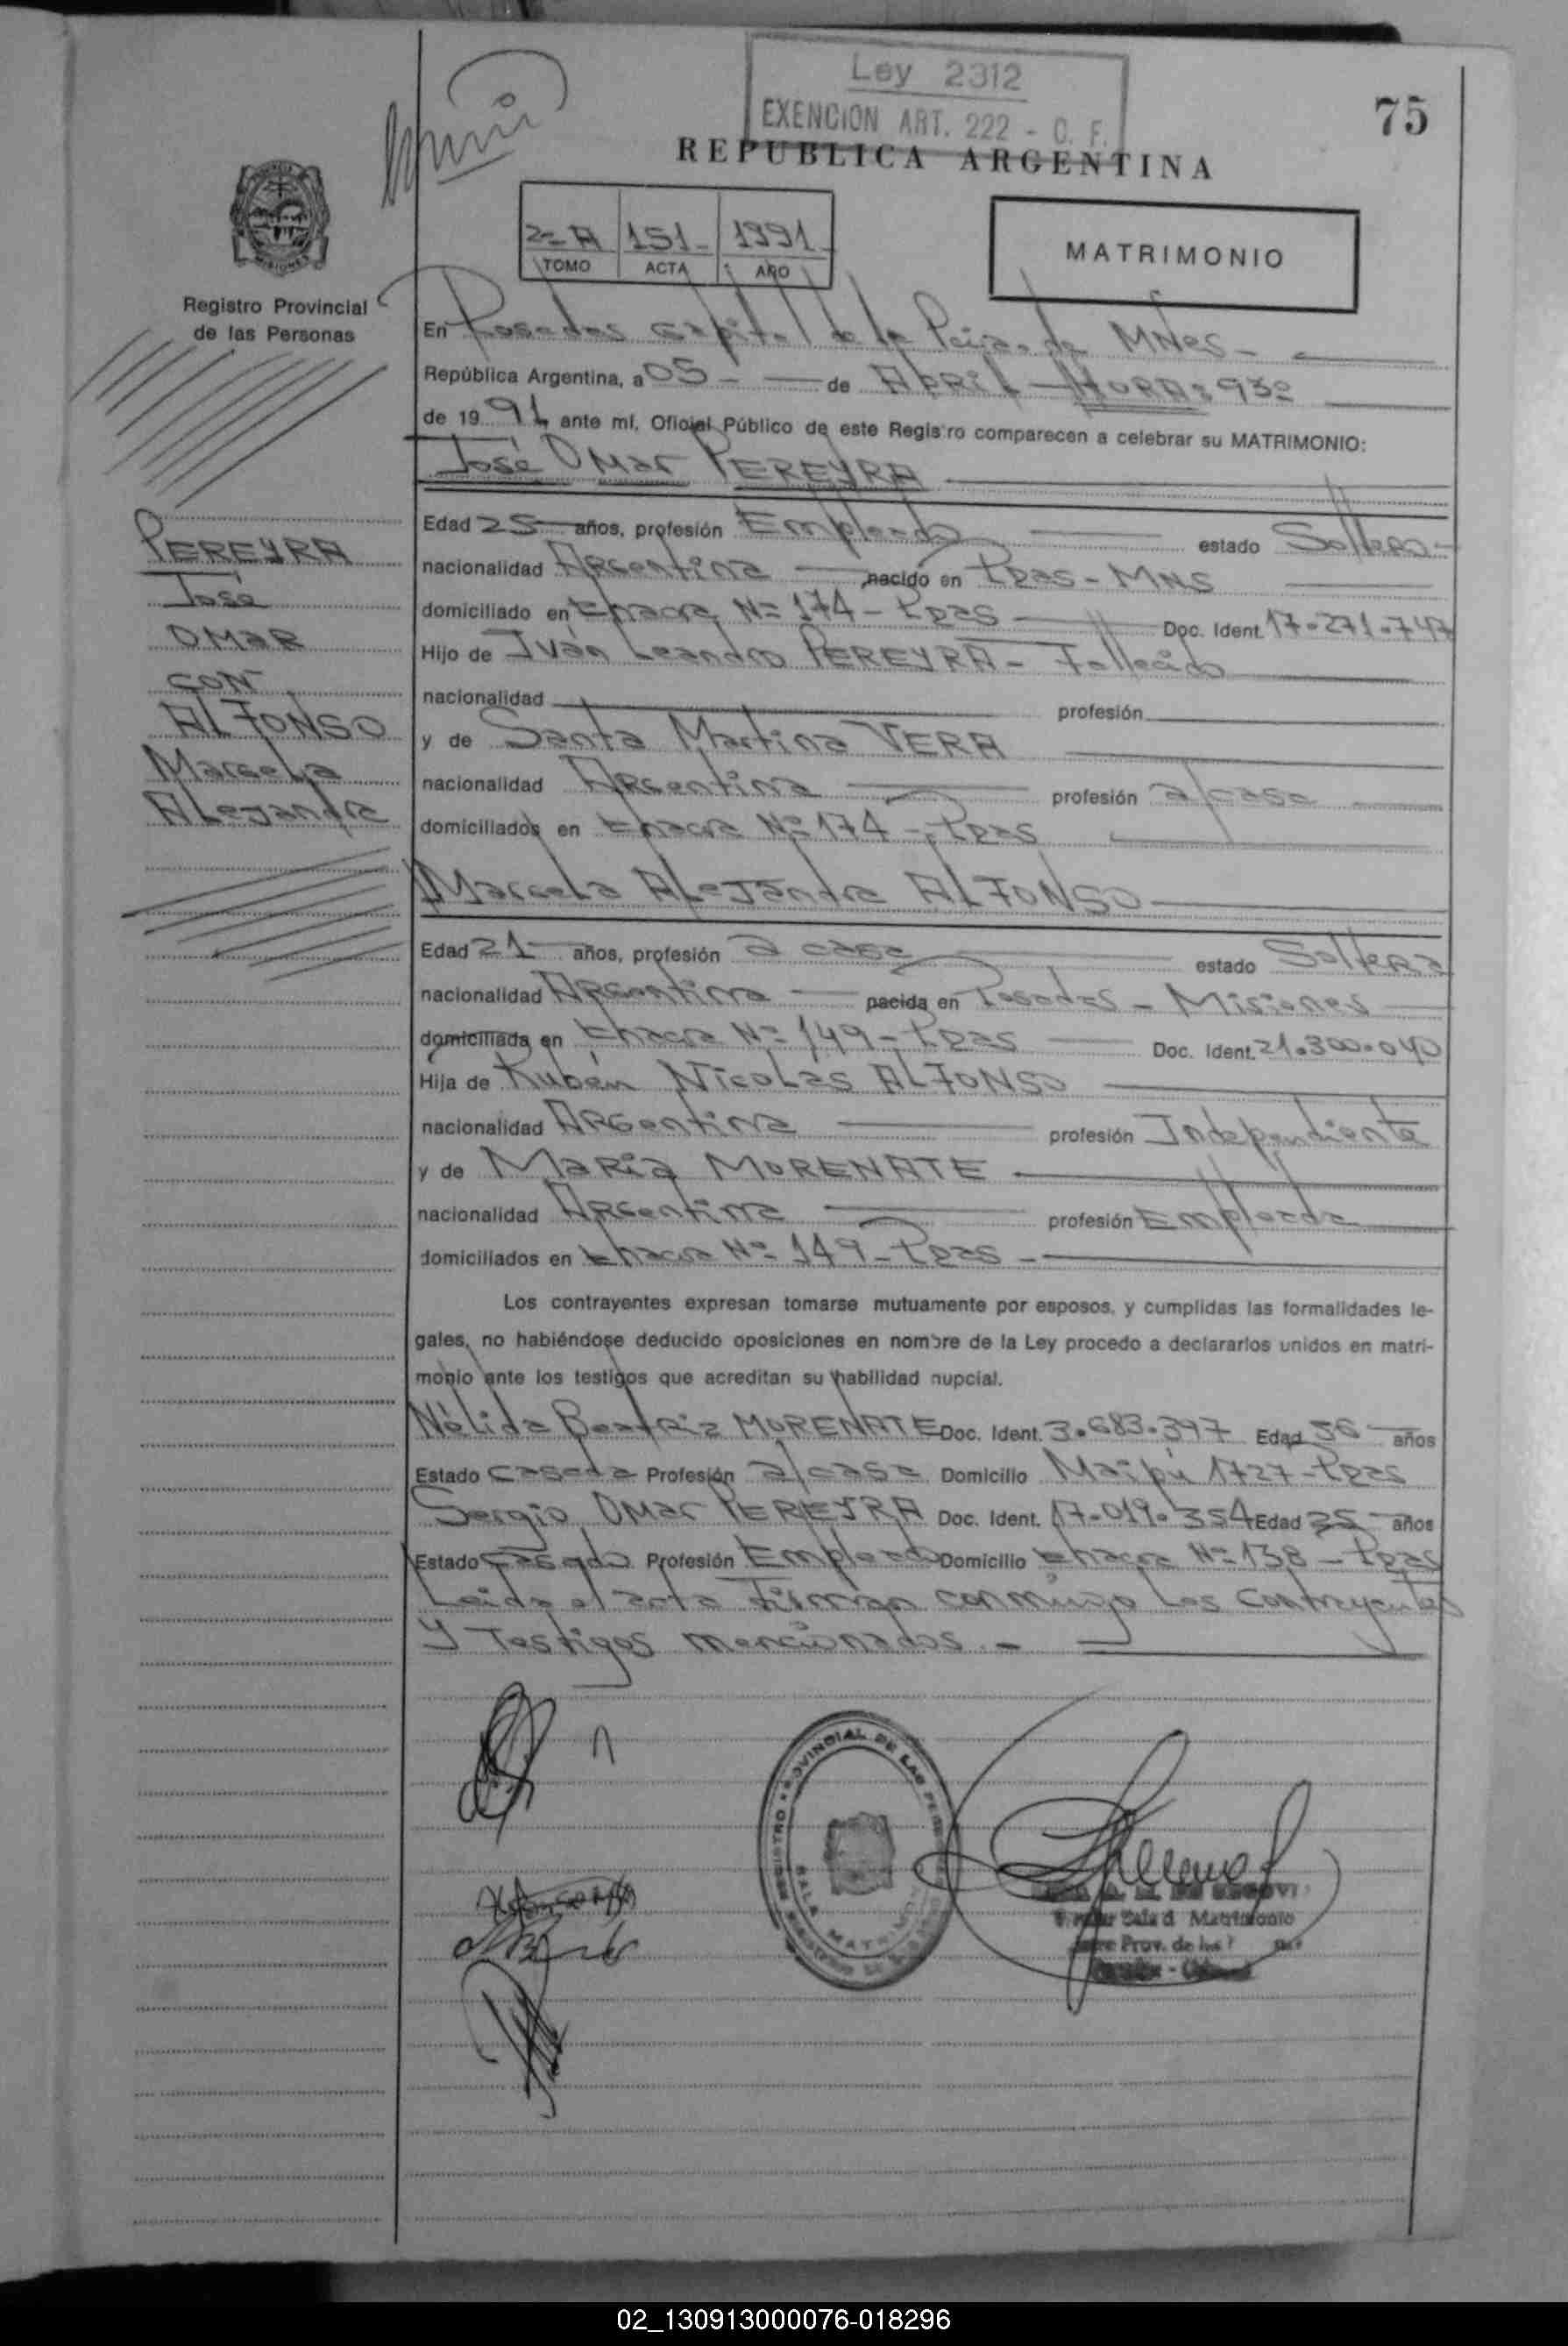 Ley 2312
EXENCION ART. 222 - C. F.
75
REPUBLICA ARGENTINA
2º A 151- 1991-
TOMO ACTA AÑO
MATRIMONIO
Registro Provincial
de las Personas
En Posadas capital de la Pcia. de MNes-
República Argentina, a 05- de Abril HORA: 930
de 19 91 ante mí, Oficial Público de este Registro comparecen a celebrar su MATRIMONIO:
José Omar PEREYRA
PEREYRA
José
OMAR
CON
ALFONSO
Marcela
Alejandra
Edad 25 años, profesión Empleado estado Soltero-
nacionalidad Argentina nacido en Pdas-MNS
domiciliado en Chacra Nº 174-Pdas Doc. Ident. 17.271.747
Hijo de Iván Leandro PEREYRA- Fallecido
nacionalidad profesión
y de Santa Martina VERA
nacionalidad Argentina profesión a/casa
domiciliados en Chacra Nº 174-Pdas
Marcela Alejandra ALFONSO
Edad 21 años, profesión a casa estado Soltera
nacionalidad Argentina nacida en Posadas- Misiones
domiciliada en Chacra Nº 149-Pdas Doc. Ident. 21.300.040
Hija de Rubén Nicolas ALFONSO
nacionalidad Argentina profesión Independiente
y de María MORENATE
nacionalidad Argentina profesión Empleada
domiciliados en Chacra Nº 149-Pdas-
Los contrayentes expresan tomarse mutuamente por esposos, y cumplidas las formalidades le-
gales, no habiéndose deducido oposiciones en nombre de la Ley procedo a declararlos unidos en matri-
monio ante los testigos que acreditan su habilidad nupcial.
Nélida Beatriz MORENATE Doc. Ident. 3.683.397 Edad 56 años
Estado casada Profesión a/casa Domicilio Maipú 1727-Pdas
Sergio Omar PEREYRA Doc. Ident. 17.019.354 Edad 25 años
Estado casado Profesión Empleado Domicilio Chacra Nº 138-Pdas
Leida el acta firman conmigo los contrayentes
y testigos mencionados.-
REGISTRO PROVINCIAL DE LAS
SALA MATRIMONIO
Sala d Matrimonio
Prov. de las
02_130913000076-018296